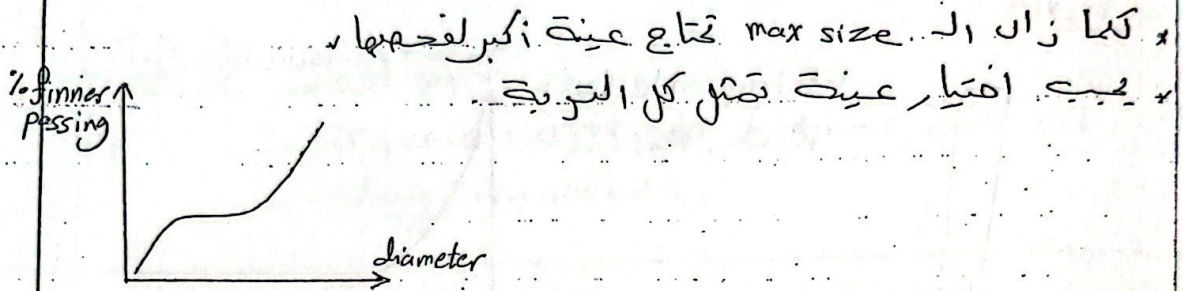 * كلما زاد الـ max size تحتاج عينة أكبر لفحصها.
* يجب اختيار عينة تمثل كل التربة
% finner
passing
diameter